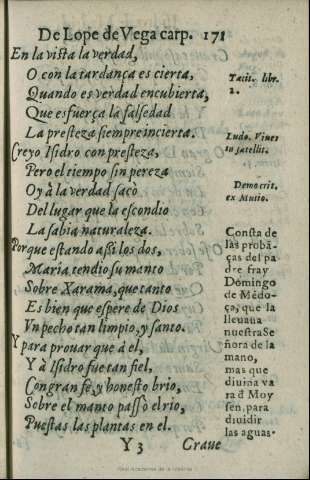 De Lope de Vega carp. 171
En la vista la verdad,
O con la tardança es cierta,
Quando es verdad encubierta,
Que esfuerça la falsedad
La presteza siempre incierta.
Creyo Isidro con presteza,
Pero el tiempo sin pereza
Oy à la verdad sacò
Del lugar que la escondio
La sabia naturaleza.
Porque estando assi los dos,
Maria tendio su manto
Sobre Xarama, que tanto
Es bien que espere de Dios
Vn pecho tan limpio, y santo.
Y para prouar que à el,
Y à Isidro fue tan fiel,
Con gran fè, y honesto brio,
Sobre el manto passò el rio,
Puestas las plantas en el.
Y 3 Craue
Tacit. libr.
2.
Ludo. Viues
in satellit.
Democrit.
ex Mutio.
Consta de
las probã-
ças del pa
dre fray
Domingo
de Mẽdo-
ça, que la
lleuaua
nuestra Se
ñora de la
mano,
mas que
diuina va
ra d Moy
sen, para
diuidir
las aguas.